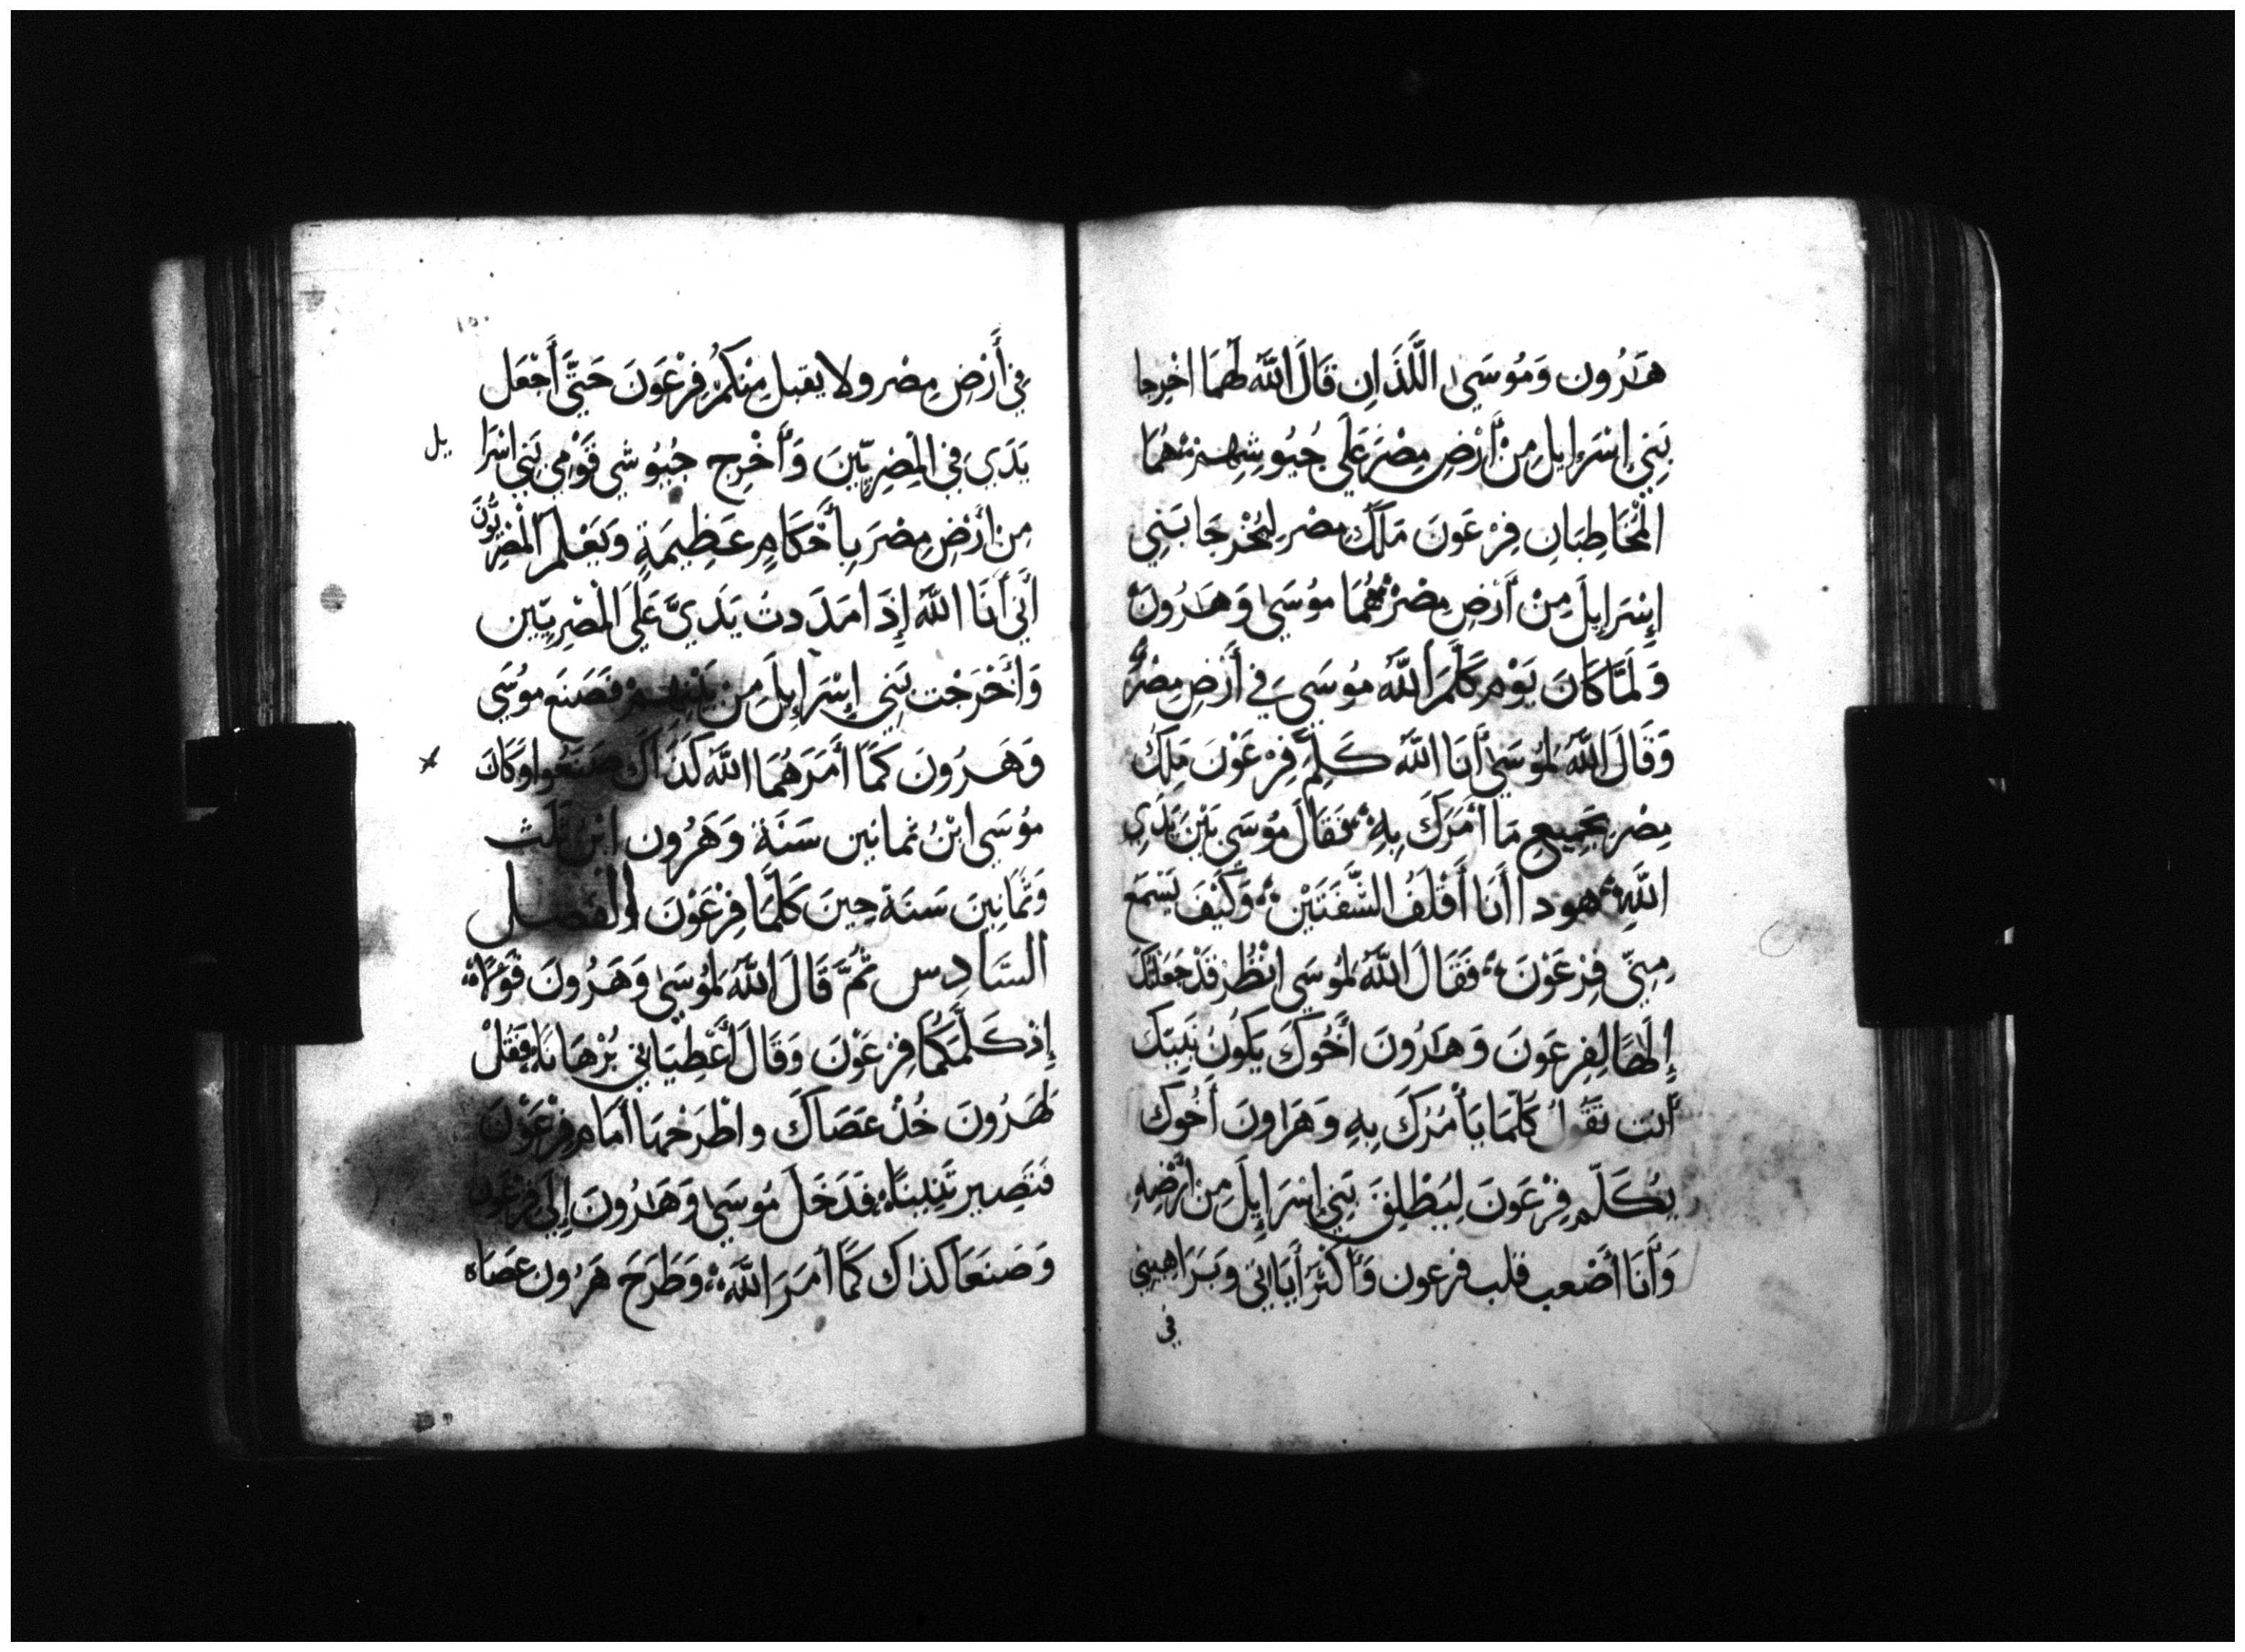 هَرُون وَمُوسَى اللَّذَانِ قَالَ اللَّهُ لَهُمَا اخْرِجا
بَنِي إِسْرَإيلِ مِنْ أَرْضِ مِصْرَ عَلَى جُيُوشِهِمْ هُمَا
الْمُخَاطِبَانِ فِرْعَوْنَ مَلِكَ مِصْرِ لِيُخْرِجَا بَنِي
إِسْرَايِلَ مِنْ أَرْضِ مِصْرَ هُمَا مُوسَى وَهَرُونَ
وَلَمَّا كَانَ يَوْمِ كَلَّمَ اللَّهُ مُوسَى فِي أَرْضِ مِصْرَ
وَقَالَ اللَّهُ لِمُوسَى أَنَا اللَّهُ كَلِّمْ فِرْعَوْنَ مَلِكَ
مِصْرَ بِجَمِيعِ مَا أَمَرَكَ بِهِ فَقَالَ مُوسَى بَيْنَ يَدَيِ
اللَّهِ هودا أَنَا أَقْلَفُ الشَّفَتَيْنِ وَكَيْفَ يَسْمَع
مِنِّي فِرْعَوْنَ فَقَالَ اللَّهُ لِمُوسَى انْظُرْ قَدْ جَعَلْتُكَ
إِلَهًا لِفِرْعَوْنَ وَهَرُونَ أَخُوكَ يَكُونُ نَبِيِّكَ
أَنْت تَقُولُ كُلَّمَا يَأْمُرُكَ بِهِ وَهَرَاونَ أَخُوكَ
يُكَلِّم فِرْعَوْنَ لِيُطْلِقَ بَنِي إِسْرَايِلَ مِنْ أَرْضِهِ
وَأَنَا أَصْعب قلب فرعون وَأَكْثَرَ أَيَاتي وبَرَاهِينِي
في
١٥٠
فِي أَرْضِ مِصْر ولا يقبل مِنْكُمْ فِرْعَوْنَ حَتَّى أَجْعَل
يَدَي فِي الْمِصْرِيِّينَ وَأَخْرِج جُيُوشي قَوْمِي بَنِي اسْرَا يل
مِنْ أَرْضِ مِصْرَ بِأَحْكَامٍ عَظِيمَةٍ وَيَعْلَمَ الْمِصْرِيُّونَ
أَنِّي أَنَا اللَّهُ إِذَا مَدَدتُ يَدَيَّ عَلَى الْمِصْرِيِّين
وَأَخْرَجْت بَنِي إِسْرَايِلَ مِنْ بَيْنِهِمْ فَصَنَع مُوسَى
وَهَرُونَ كَمَا أَمَرَهُمَا اللَّهُ كَذَاكَ صَنَعُوا وَكَانَ
مُوسَى ابْنُ ثمانين سَنَة وَهَرُون ابْنُ ثَلَث
وَثَمَانِينَ سَنَة حِينَ كَلَّمَا فِرْعَوْنَ الفصل
السَّادِس ثُمَّ قَالَ اللَّهُ لِمُوسَى وَهَرُونَ
إِذ كَلَّمَكُمَا فِرْعَوْنَ وَقَالَ أَعْطِيَانِي بُرْهَانًا فَقُلْ
لِهَرُونَ خُذْ عَصَاكَ واطْرَحْهَا أَمَامَ فِرْعَوْنَ
فَتَصِير تِنِّينًا فَدَخَلَ مُوسَى وَهَرُونَ إِلَى فِرْعَوْنَ
وَصَنَعَا كذاك كَمَا أَمَرَ اللَّهُ وَطَرَحَ هَرُونَ عَصَاه